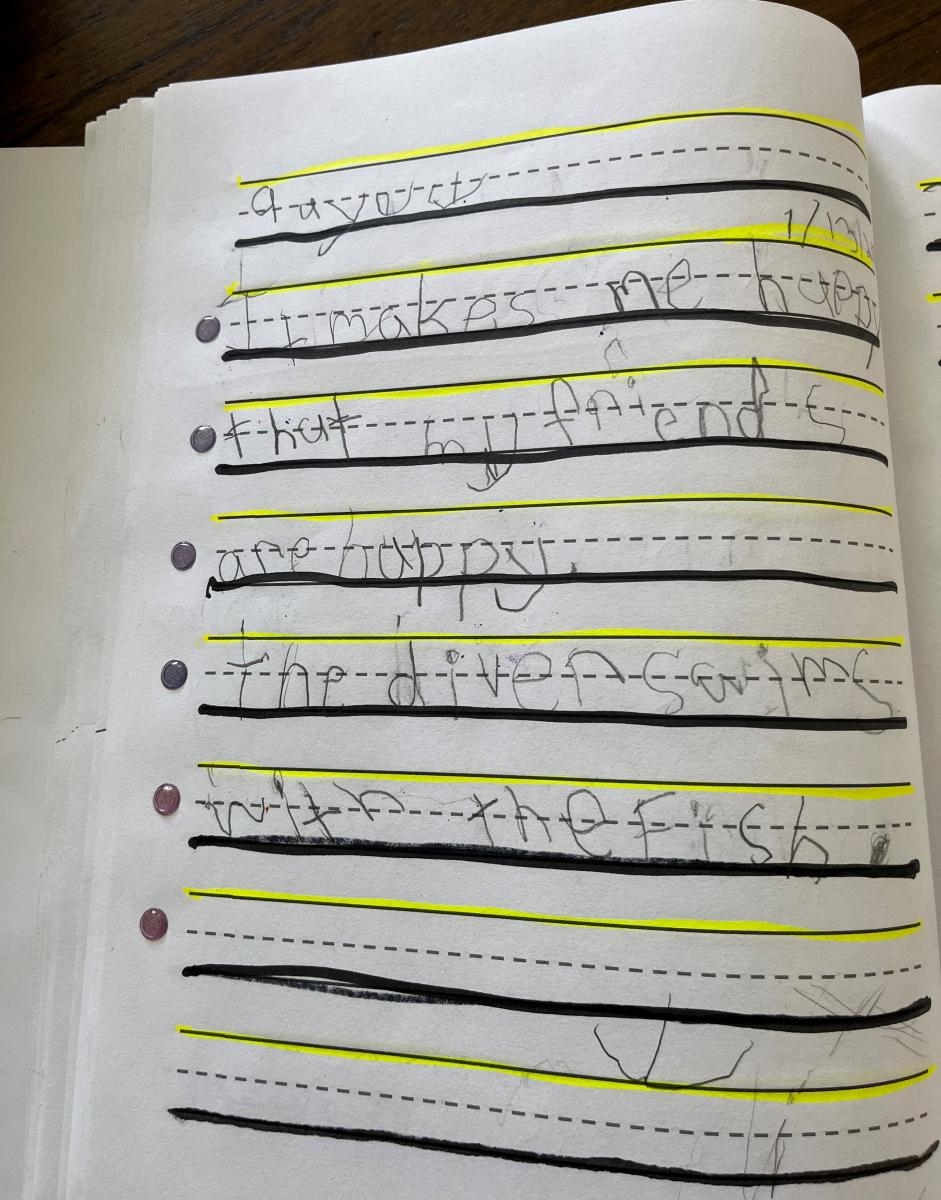 1/13/2
It makes me happy
that my friends
are happy.
The diver swims
with the fish.